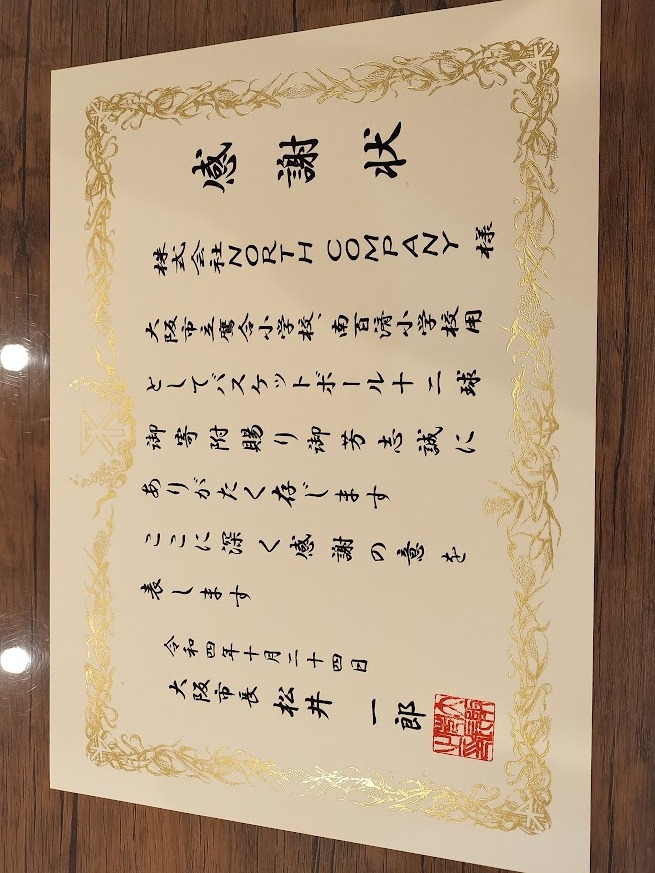 感謝状
株式会社NORTH COMPANY 様
大阪市立鷹合小学校、南百済小学校用
としてバスケットボール十二球
御寄附賜り御芳志誠に
ありがたく存じます
ここに深く感謝の意を
表します
令和四年十月二十四日
大阪市長 松井 一郎